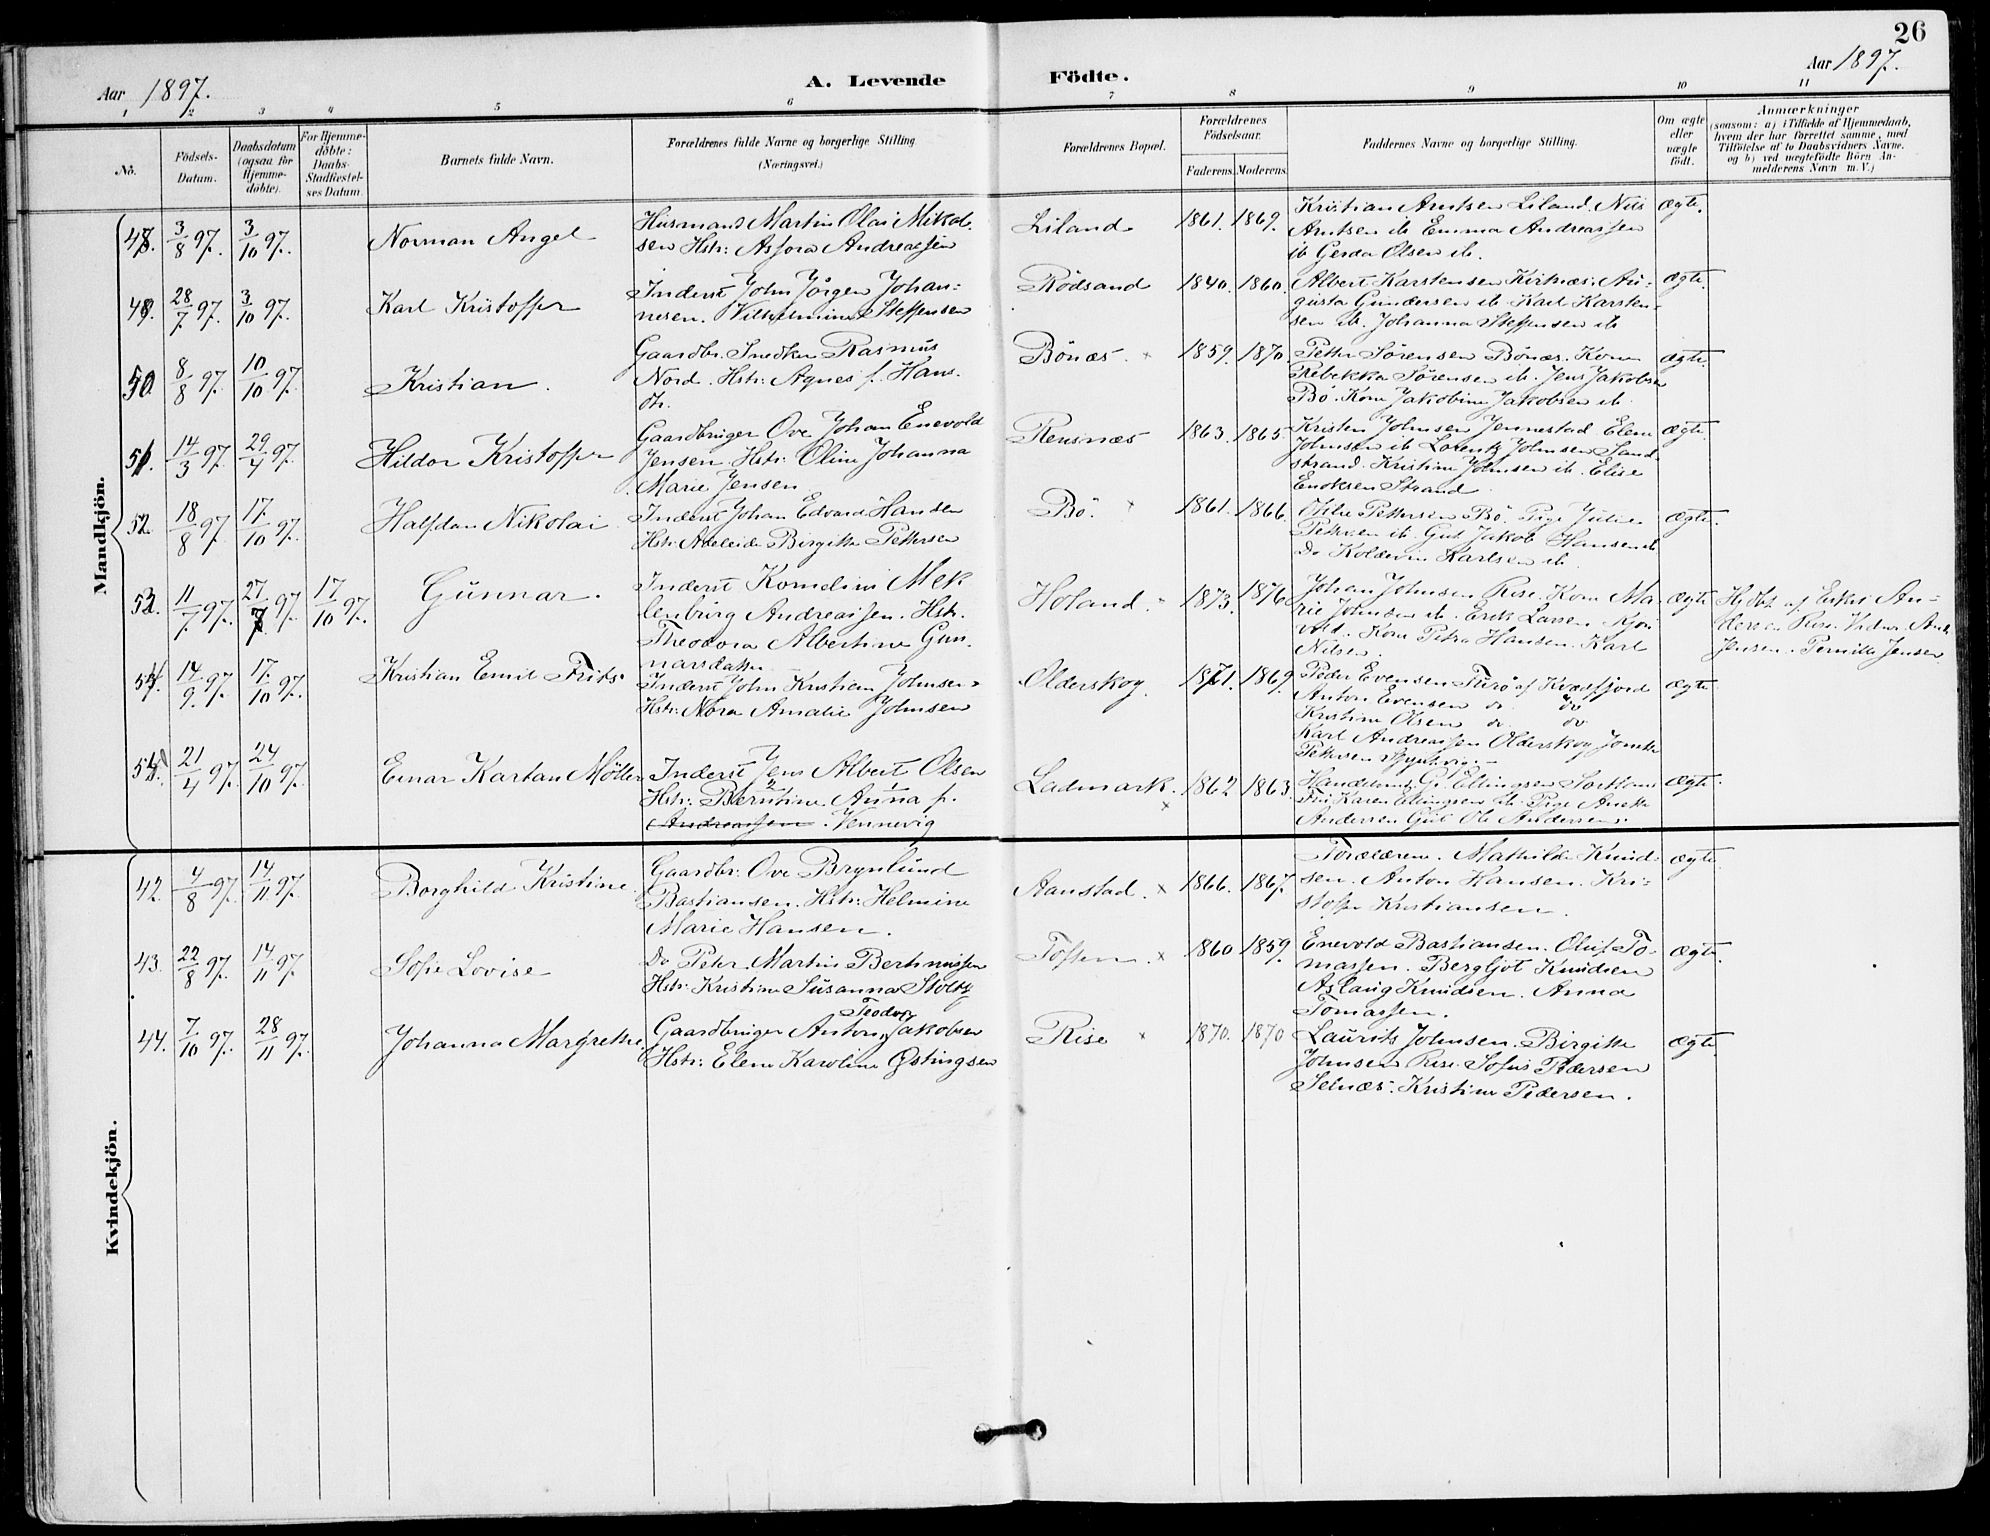 26
Aar 1897.
A. Levende Födte.
Aar 1897.
1 2 3 4 5 6 7 8 9 10 11
No.
Födsels-Datum.
Daabsdatum (ogsaa for Hjemme-döbte).
For Hjemme-döbte: Daabs-Stadfæstel-ses Datum.
Barnets fulde Navn.
Forældrenes fulde Navne og borgerlige Stilling (Næringsvei.)
Forældrenes Bopæl.
Forældrenes Födselsaar.
Faderens. Moderens.
Faddernes Navne og borgerlige Stilling.
Om ægte eller uægte födt.
Anmærkninger
(saasom: a) i Tilfælde af Hjemmedaab,
hvem der har forrettet samme, med
Tilföielse af to Daabsvidners Navne.
og b) ved uægtefödte Börn An-
melderens Navn m.V.)
Mandkjön.
48. 3/8 97. 3/10 97.
Norman Angel
Husmand Martin Olai Mikal-
sen Hstr: Assora Andreassen
Liland
1861. 1869.
Kristian Arntsen Liland. Nils
Arntsen ib Emma Andreassen
ib Gerda Olsen ib.
Ægte.
49. 28/7 97. 3/10 97.
Karl Kristoffer
Inderst John Jörgen Johan-
nesen. Vilhelmine Steffensen
Rödsand
1840. 1860.
Albert Karstensen Kirknæs. Au-
gusta Gundersen ib Karl Karsten-
sen ib. Johanna Steffensen ib
Ægte.
50. 8/8 97. 10/10 97.
Kristian.
Gaardbr. Snedker Rasmus
Nord. Hstr: Agnes f. Hans-
dtr.
Bönæs. x
1859. 1870.
Petter Sörensen Bönæs. Kone
Rebekka Sörensen ib. Jens Jakobsen
Bö. Kone Jakobine Jakobsen ib.
Ægte.
51. 14/3 97. 29/4 97.
Hildor Kristoffer
Gaardbruger Ove Johan Enevold
Jensen. Hstr: Oline Johanna
Marie Jensen
Rensnæs
1863. 1865.
Kristen Johnsen Jennestad Elen
Johnsen ib Lorentz Johnsen Sand-
strand. Kristine Johnsen ib. Elise
Enoksen Strand
Ægte.
52. 18/8 97. 17/10 97.
Halfdan Nikolai
Inderst Johan Edvard Hansen
Hstr: Adeleide Birgitte Pettersen
Bö. x
1861. 1866.
Pettersen Bö. Pige Julie
Pettersen ib. Gut Jakob Hansen ib
Do Koldevin Karlsen ib.
Ægte.
53. 11/7 97. 27/7 97. 17/10 97.
Gunnar.
Inderst Kornelius Mek
lenburg Andreassen. Hstr.
Theodora Albertine Gun-
narsdatter
Holand. x
1873. 1876
Johan Johnsen Rise. Kone Ma-
rie Johnsen ib. Erik Larsen
Kone Petra Hansen. Karl
Nilsen.
Ægte
Hjdbt af
Rise. Vidner
Jensen. Pernille Jensen
54. 14/9 97. 17/10 97.
Kristian Emil Frits.
Inderst John Kristian Johnsen.
Hstr: Nora Amalie Johnsen
Olderskog.
1871. 1869.
Peder Evensen af Kvæfjord
Anton Evensen do. do
Kristine Olsen do. do
Karl Andreassen Olderskog
Pettersen
Ægte
55. 21/4 97. 24/10 97.
Einar Kartan Möller
Inderst Jens Albert Olsen
Hstr: Berntine Anna f.
Andreassen. Vennevig
Ladmark. x
1862 1863.
G. Ellingsen Sortland
Karen Ellingsen ib. Pige
Andersen Gut Ole Andersen.
Ægte.
Kvindekjön.
42. 4/8 97. 14/11 97.
Borghild Kristine.
Gaardbr: Ove Brynlund
Bastiansen. Hstr: Helmine
Marie Hansen.
Aanstad. x
1866. 1867.
Forældrene. Mathilde Knud-
sen. Anton Hansen. Kri-
stoffer Kristiansen.
Ægte.
43. 22/8 97. 14/11 97.
Sofie Lovise
Do Peter Martin Berhnussen
Hstr: Kristine Susanna Stoltz
Toften. x
1860 1859.
Enevold Bastiansen. Oluf To-
massen. Bergljot Knudsen
Aslaug Knudsen. Anna
Tomassen.
Ægte.
44. 7/10 97. 28/11 97.
Johanna Margrethe.
Teodor
Gaardbruger Anton Jakobsen
Hstr: Elen Karoline Østingsen
Rise x
1870. 1870
Laurits Johnsen. Birgitte
Johnsen Rise. Sofus Pedersen
Selnæs. Kristine Pedersen.
Ægte.